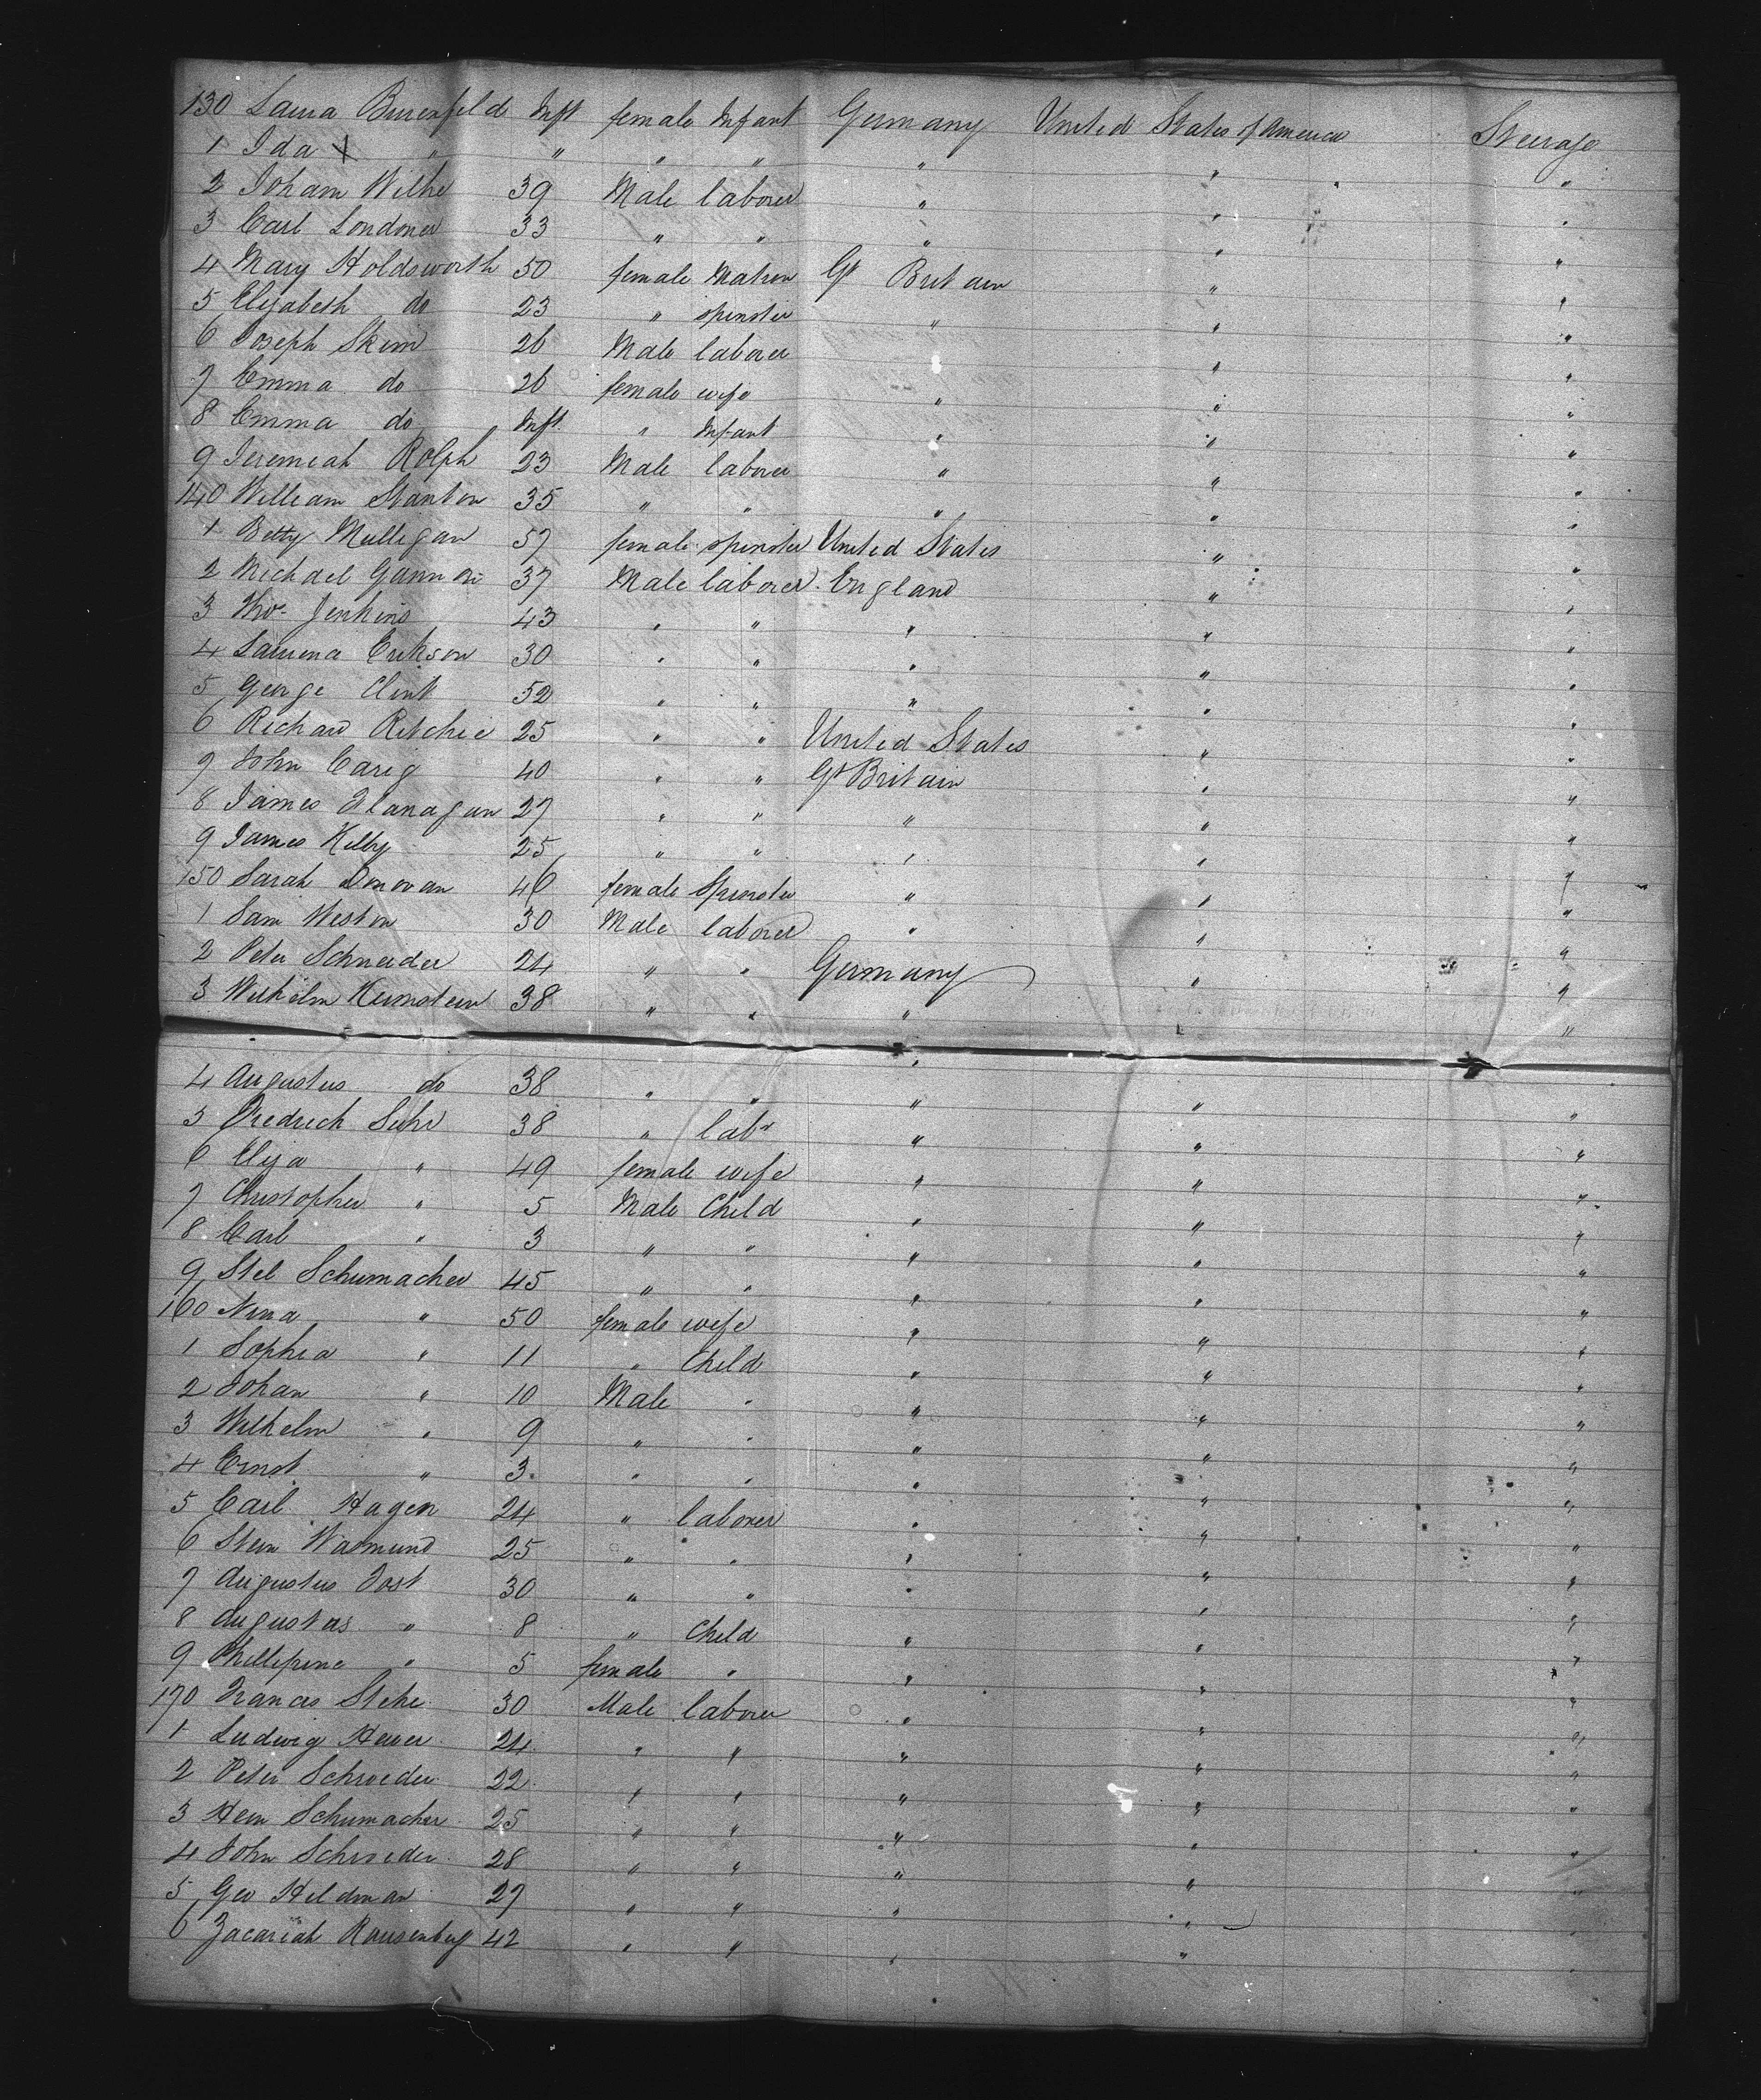 130 Laura Burenfeld Inft female Infant Germany United States of America Steerage
1 Ida X " " " " " " "
2 Joham Wilhe 39 Male laborer " " "
3 Carl Londoner 33 " " " " "
4 Mary Holdsworth 50 female Matron Gt Britain " "
5 Elizabeth do 23 " spinster " " "
6 Joseph Skim 26 Male laborer " " "
7 Emma do 26 female wife " " "
8 Emma do Inft " Infant " " "
9 Jeremiah Rolph 23 Male laborer " " "
140 William Stanton 35 " " " " "
1 Betty Mulligan 57 female spinster United States " "
2 Michael Gannon 37 Male laborer England " "
3 Tho- Jenkins 43 " " " " "
4 Laurena Erikson 30 " " " " "
5 George Clint 52 " " " " "
6 Richard Ritchie 25 " " United States " "
7 John Carig 40 " " Gt Britain " "
8 James Flanagan 27 " " " " "
9 James Kelby 25 " " " " "
150 Sarah Donovan 46 female Spinster " " "
1 Sam Weston 30 Male laborer " " "
2 Peter Schneider 24 " " Germany " "
3 Wilhelm Hernstein 38 " " " " "
4 Augustus do 38 " " " " "
5 Fredrich Suhr 38 " labr " " "
6 Eliza " 49 female wife " " "
7 Christopher " 5 Male Child " " "
8 Carl " 3 " " " " "
9 Stel Schumacher 45 " " " " "
160 Nina " 50 female wife " " "
1 Sophia " 11 " Child " " "
2 Johan " 10 Male " " " "
3 Wilhelm " 9 " " " " "
4 Ernst " 3 " " " " "
5 Carl Hagen 24 " laborer " " "
6 Stern Wasmund 25 " " " " "
7 Augustus Jost 30 " " " " "
8 Augustus " 8 " Child " " "
9 Phillipine " 5 female " " " "
170 Francis Stehe 30 Male laborer " " "
1 Ludwig Hever 24 " " " " "
2 Peter Schroeder 22 " " " " "
3 Hein Schumacher 25 " " " " "
4 John Schroeder 28 " " " " "
5 Geo Heldman 27 " " " " "
6 Zacariah Rausenberg 42 " " " " "